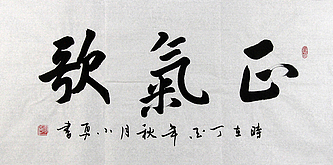 正氣歌
時在丁亥年秋月小真書